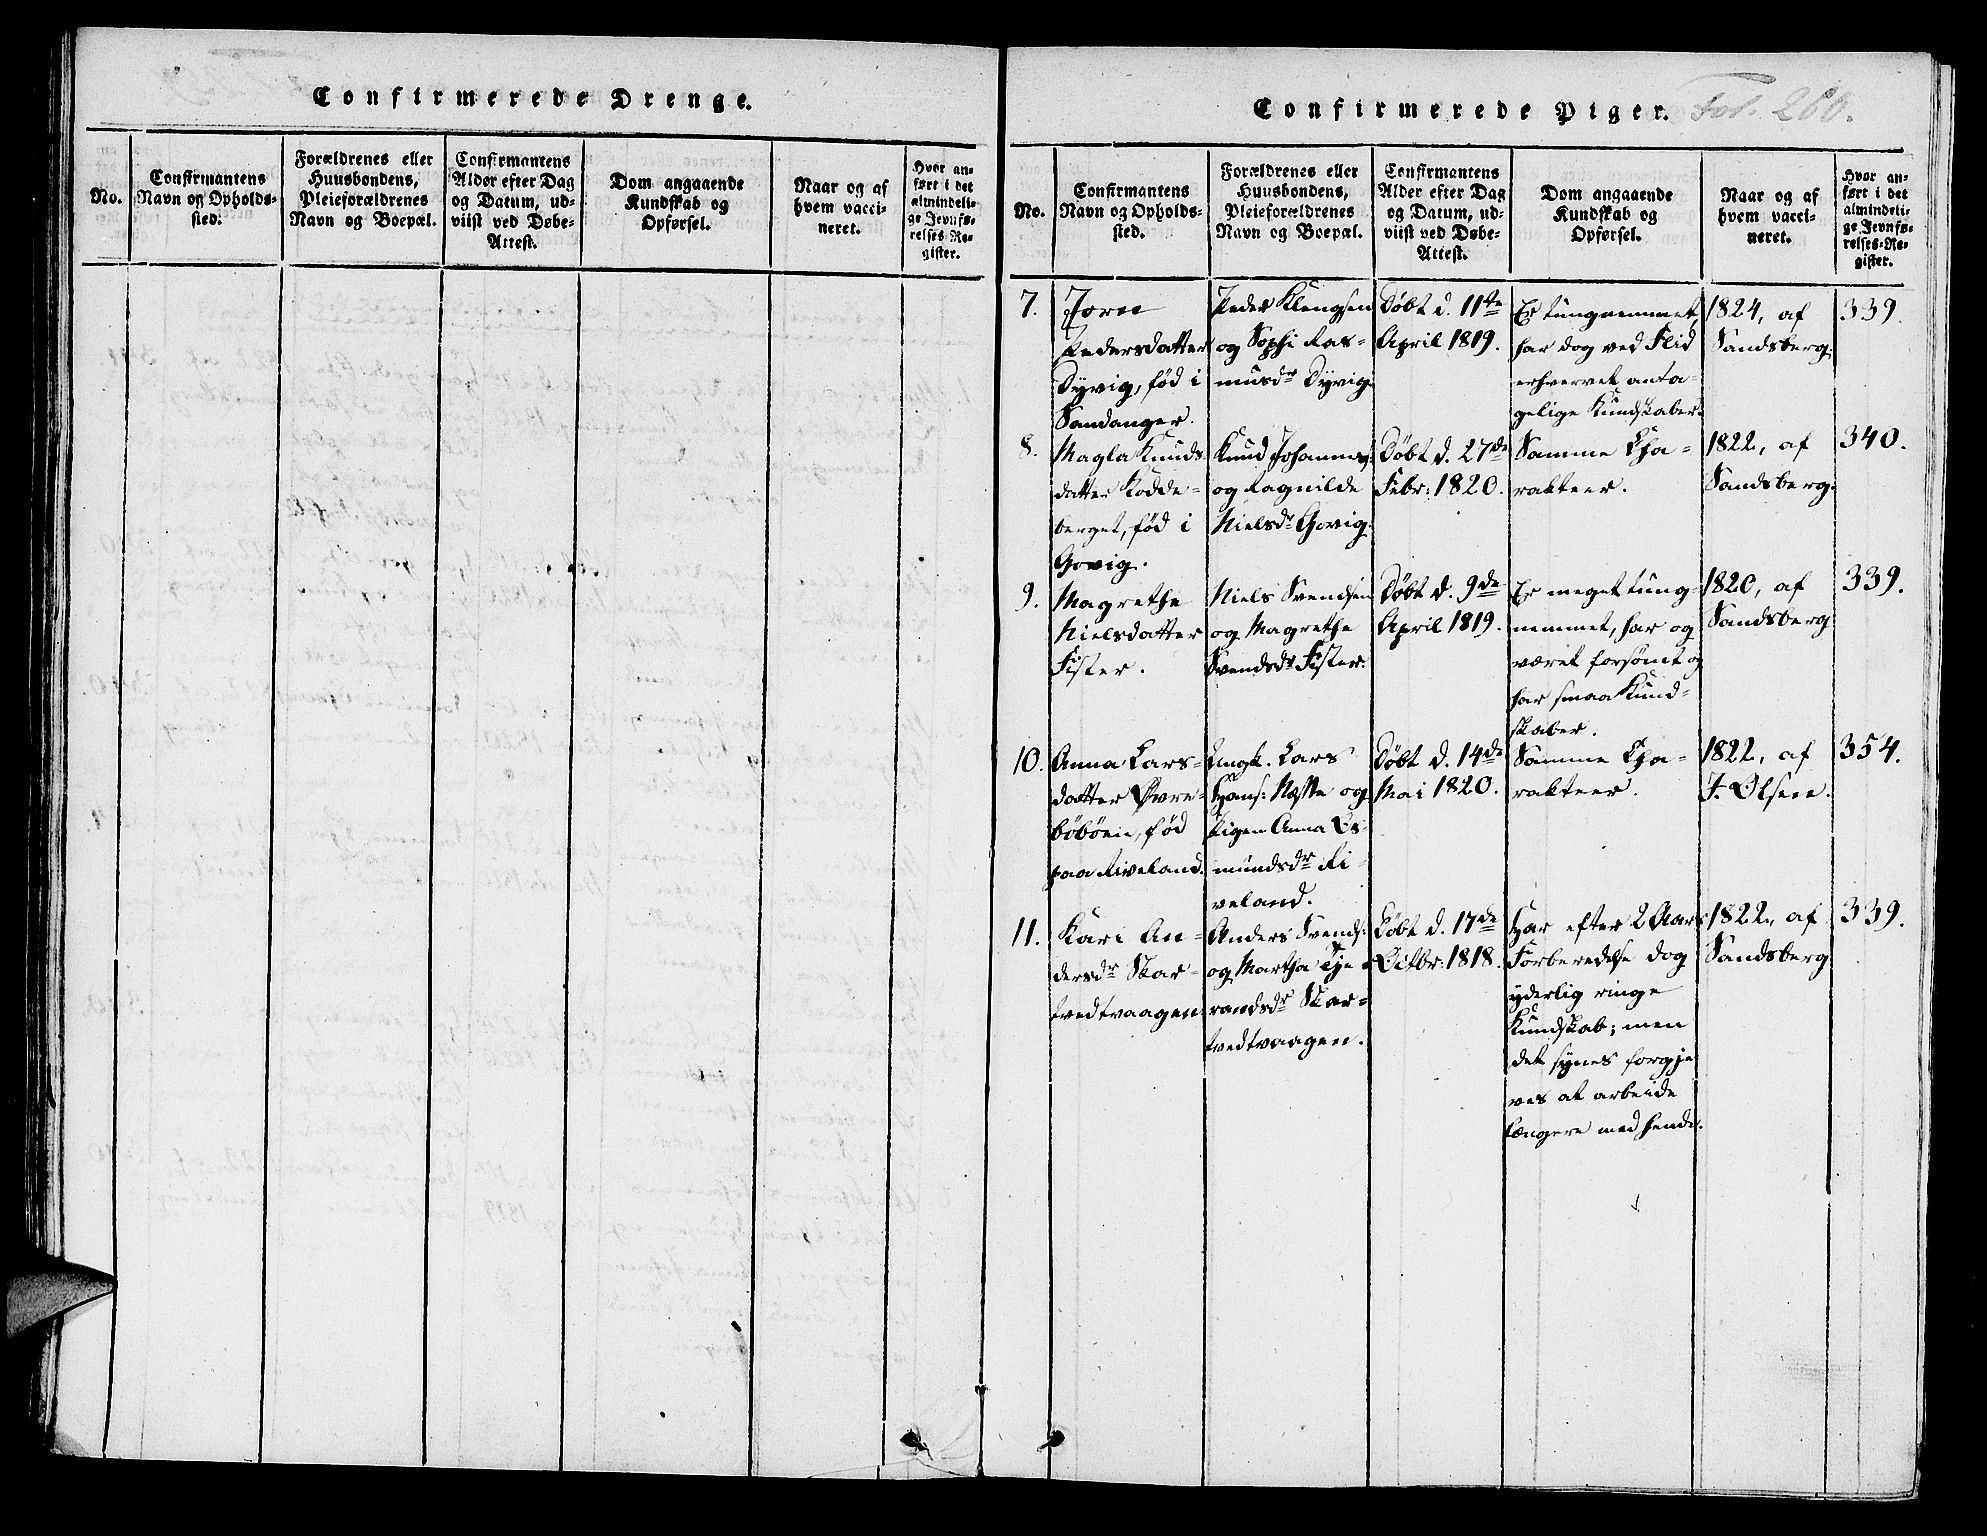 Confirmerede Drenge.
No.
Confirmantens
Navn og Opholds-
sted.
Forældrenes eller
Huusbondens,
Pleieforældrenes
Navn og Boepæl.
Confirmantens
Alder efter Dag
og Datum, ud-
viist ved Døbe-
Attest.
Dom angaaende
Kundskab og
Opførsel.
Naar og af
hvem vacci-
neret.
Hvor an-
ført i det
almindeli-
ge Jevnfø-
relses-Re-
gister.
Confirmerede Piger.
Fol. 260.
No.
Confirmantens
Navn og Opholds-
sted.
Forældrenes eller
Huusbondens,
Pleieforældrenes
Navn og Boepæl.
Confirmantens
Alder efter Dag
og Datum, ud-
viist ved Døbe-
Attest.
Dom angaaende
Kundskab og
Opførsel.
Naar og af
hvem vacci-
neret.
Hvor an-
ført i det
almindeli-
ge Jevnfø-
relses-Re-
gister.
7.
Pedersdatter
Dyvig, fød i
Sandanger.
Peder Klengsen
og Sophi Ras-
musdr Dyvig
Døbt d. 11te
April 1819.
Er tungnemmet,
har dog ved Flid
erhvervet anta-
gelige Kundskaber.
1824, af
Sandsberg.
339.
8.
Magla Knuds
datter Kodde-
berget, fød i
Govig.
Knud Johannes:
og Ragnilde
Nielsdr Govig.
Døbt d. 27de
Febr: 1820.
Samme Cha-
rakteer.
1822, af
Sandsberg.
340.
9.
Magrethe
Nielsdatter
Fister.
Niels Svendsen
og Magrethe
Svendsdr Fister.
Døbt d. 9de
April 1819.
Er meget tung-
nemmet, har og
været forsömt og
har smaa Kund-
skaber.
1820, af
Sandsberg
339.
10.
Anna Lars-
datter Øvre-
böbóen, fød
paa Riveland.
Ungk. Lars
Hans: Næsse og
Pigen Anna Os-
mundsdr Ri-
veland.
Døbt d. 14de
Mai 1820.
Samme Cha-
rakteer.
1822, af
J. Olsen.
354.
11.
Kari An-
dersdr Skar-
tvedtvaagen
Anders Svends:
og Martha Tje-
randsdr Skar-
tvedtvaagen.
Døbt d. 17de
Octbr: 1818.
Har efter 2 Aars
Forberedelse dog
yderlig ringe
Kundskab; men
det synes forgje
ves at arbeide
længere med hende.
1822, af
Sandsberg
339.